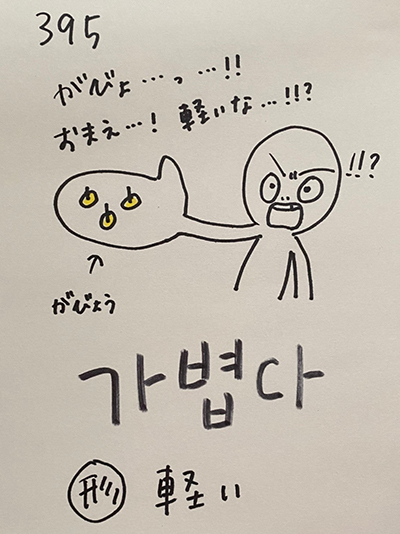 395
がびょ…っ…!!
おまえ…! 軽いな…!!?
!!?
がびょう
가볍다
形 軽い